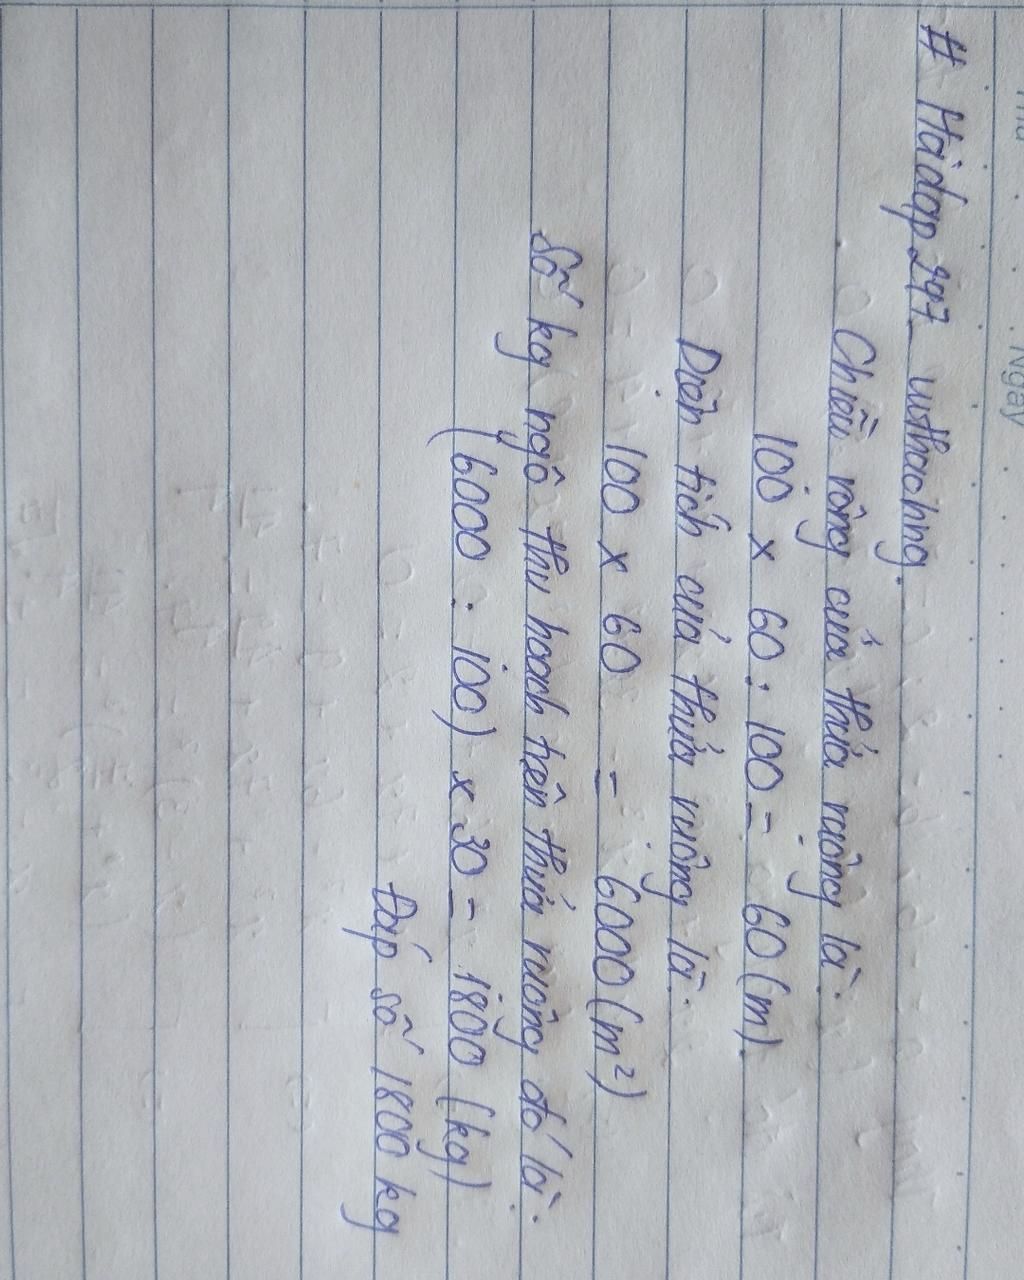 Thứ Ngày
# Hàdap297 withaohng.
Chiều rộng của thửa ruộng là:
100 x 60 : 100 = 60 (m)
Diện tích của thửa ruộng là:
100 x 60 = 6000 (m²)
Số kg ngô thu hoạch trên thửa ruộng đó là:
(6000 : 100) x 30 = 1800 (kg)
Đáp số 1800 kg